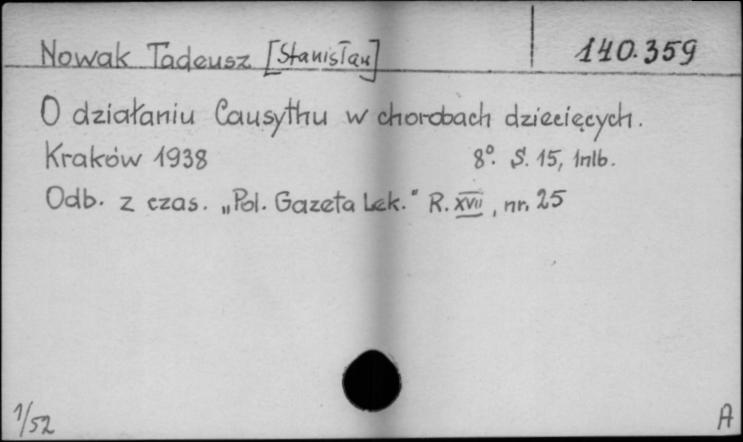 Nowak Tadeusz [Stanisław] 140.359
O działaniu Causythu w chorobach dziecięcych.
Kraków 1938 8°. S. 15, 1nlb.
Odb. z czas. „Pol. Gazeta Lek." R. XVII, nr. 25
1/52 A